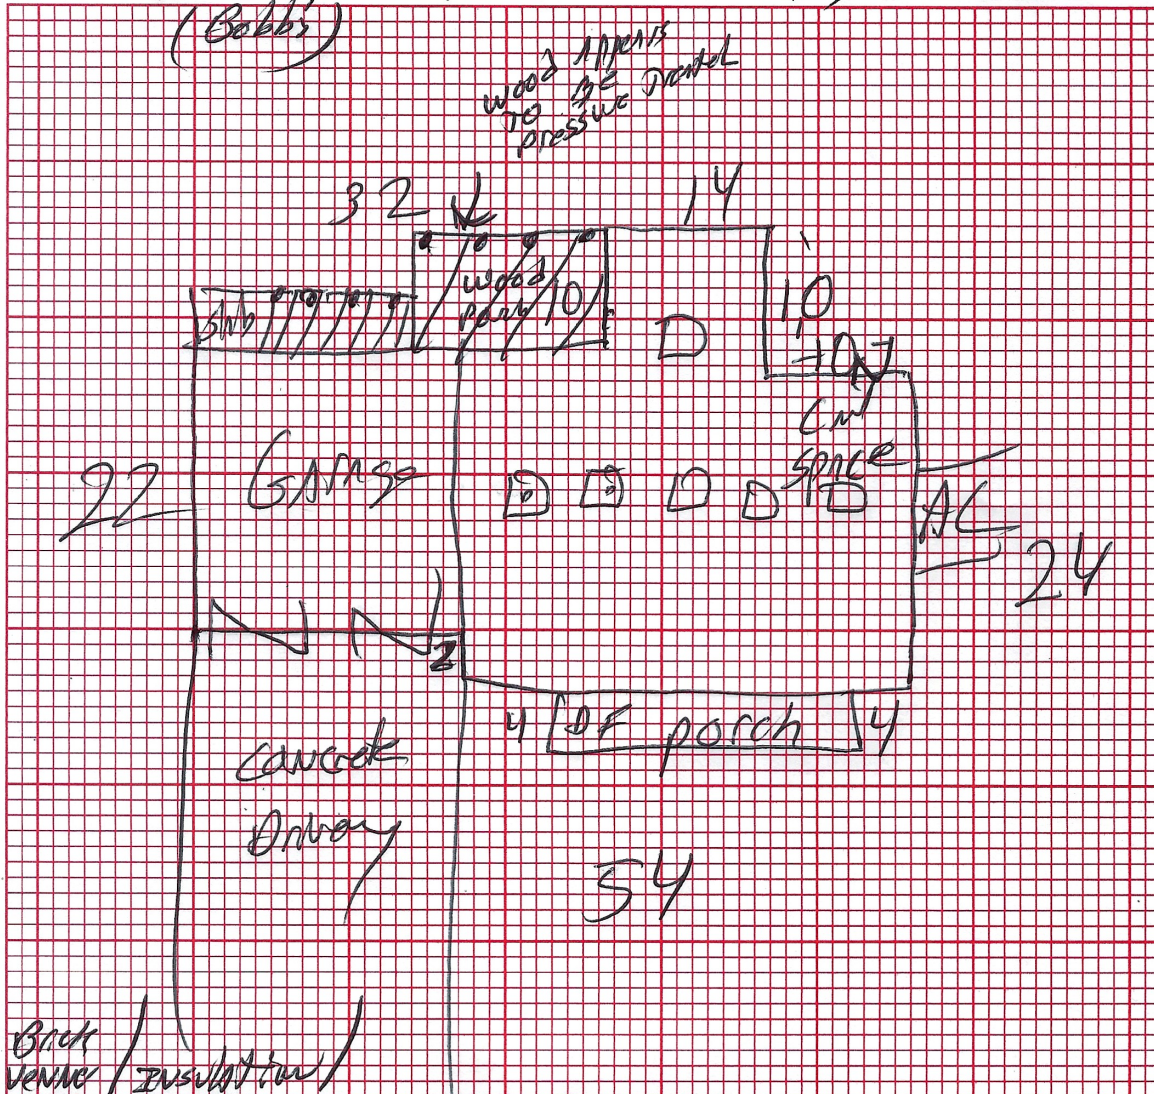 (Bobbs)
wood Appears
TO BE
pressure Treated
32
14
wood
porch
10
Slab
10
Crawl
space
22
Garage
AC
24
2
4
DF porch
4
Concrete
Driveway
54
Brick
Venner / Insulation /